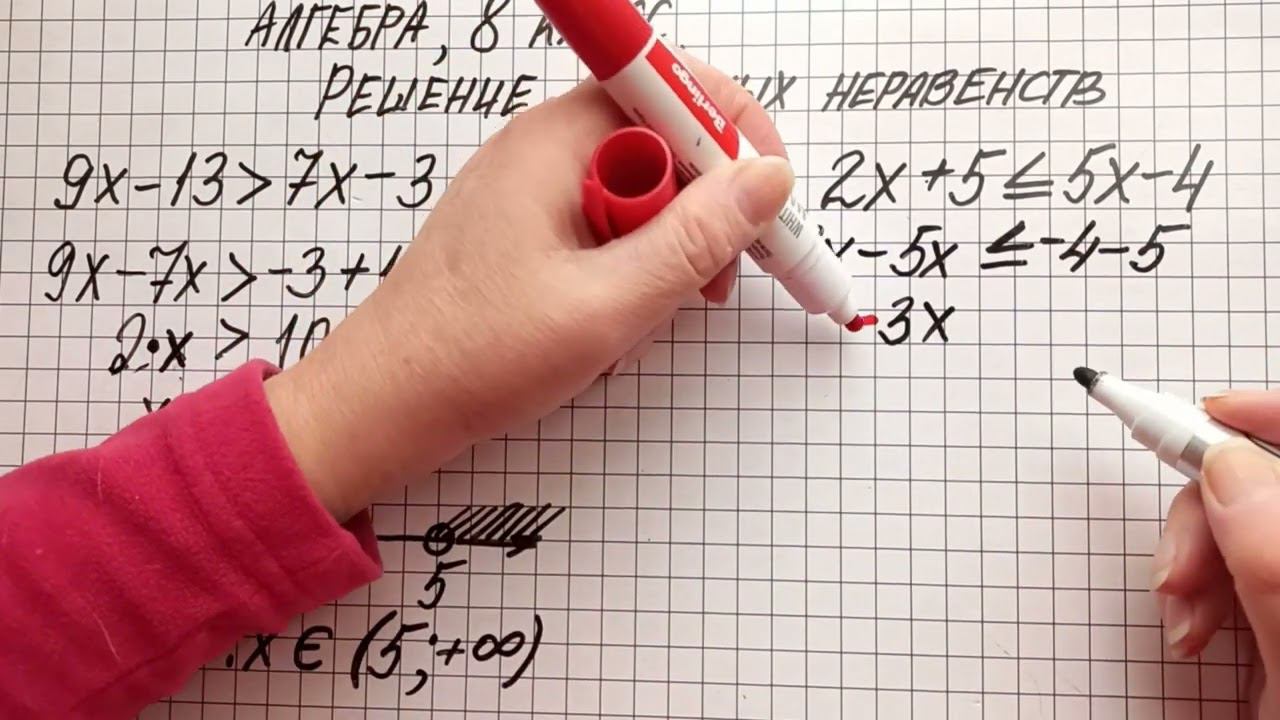 АЛГЕБРА, 8
РЕШЕНИЕ НЕРАВЕНСТВ
9x-13>7x-3
9x-7x>-3+
2·x > 10
5
x ∈ (5;+∞)
2x+5≤5x-4
-5x ≤-4-5
-3x
Berlingo